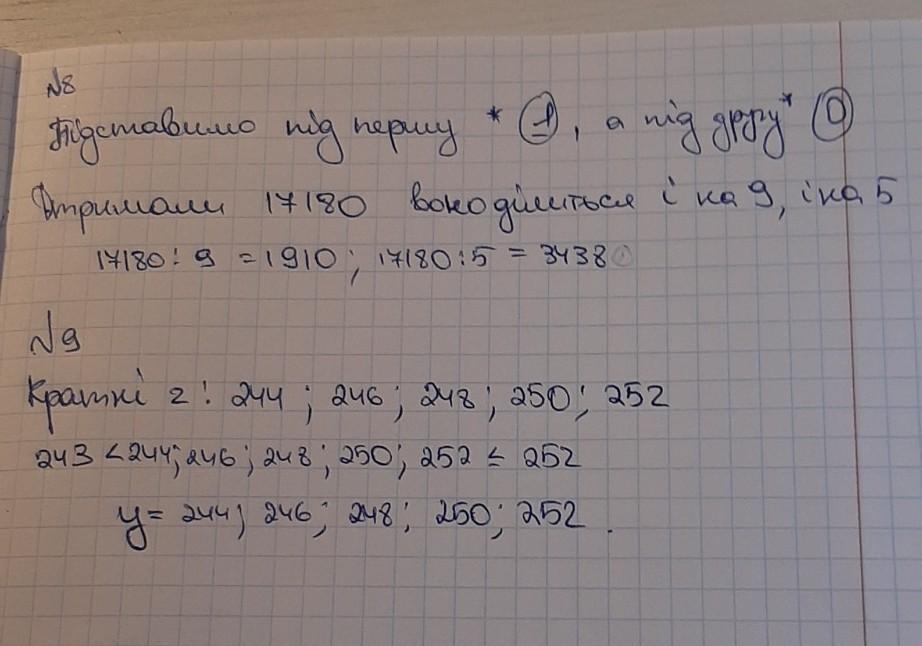 №8
Підставимо під першу * 1, а під другу * 0
Отримали 17180 воно ділиться і на 9, і на 5
17180 : 9 = 1910 ; 17180 : 5 = 3438
№9
Кратні 2 : 244 ; 246 ; 248 ; 250 ; 252
243 < 244; 246 ; 248 ; 250 ; 252 ≤ 252
y = 244; 246 ; 248 ; 250 ; 252 .